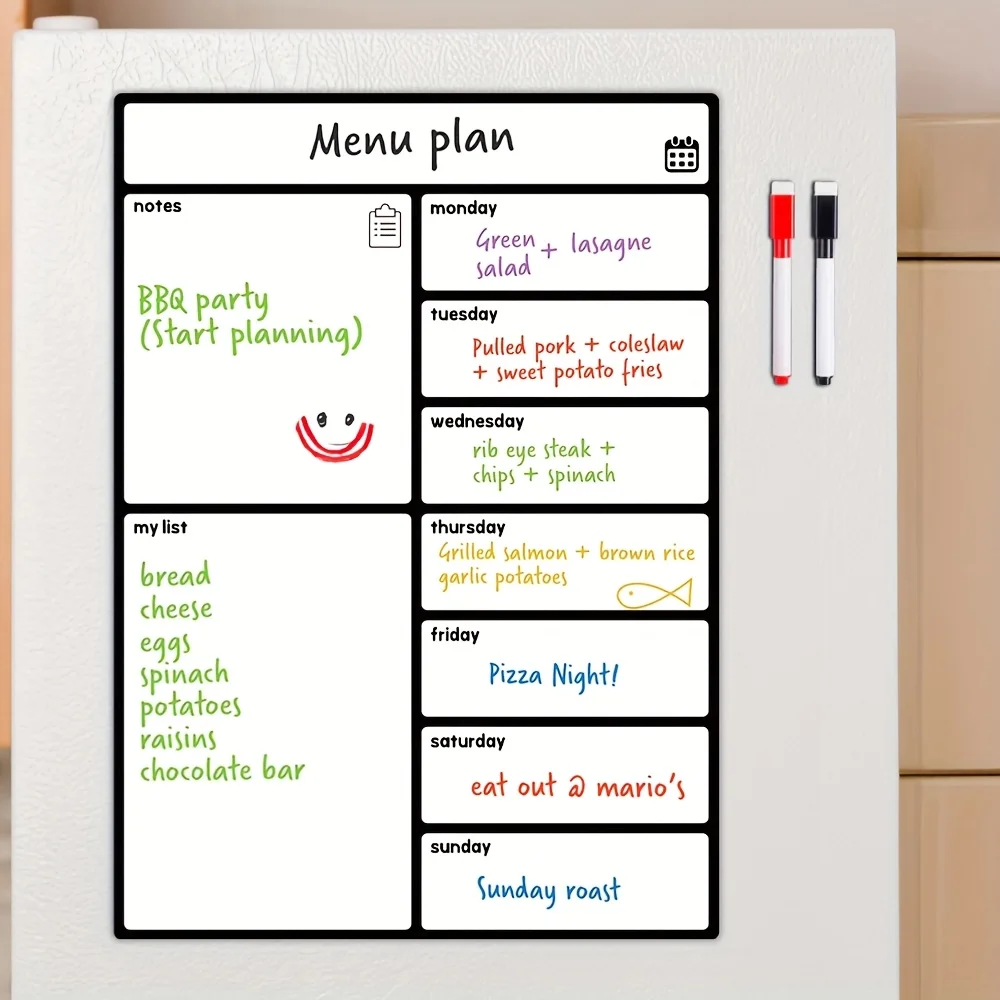 Menu plan
notes
BBQ party
(Start planning)
my list
bread
cheese
eggs
spinach
potatoes
raisins
chocolate bar
monday
Green + lasagne
salad
tuesday
Pulled pork + coleslaw
+ sweet potato fries
wednesday
rib eye steak +
chips + spinach
thursday
Grilled salmon + brown rice
garlic potatoes
friday
Pizza Night!
saturday
eat out @ mario's
sunday
Sunday roast